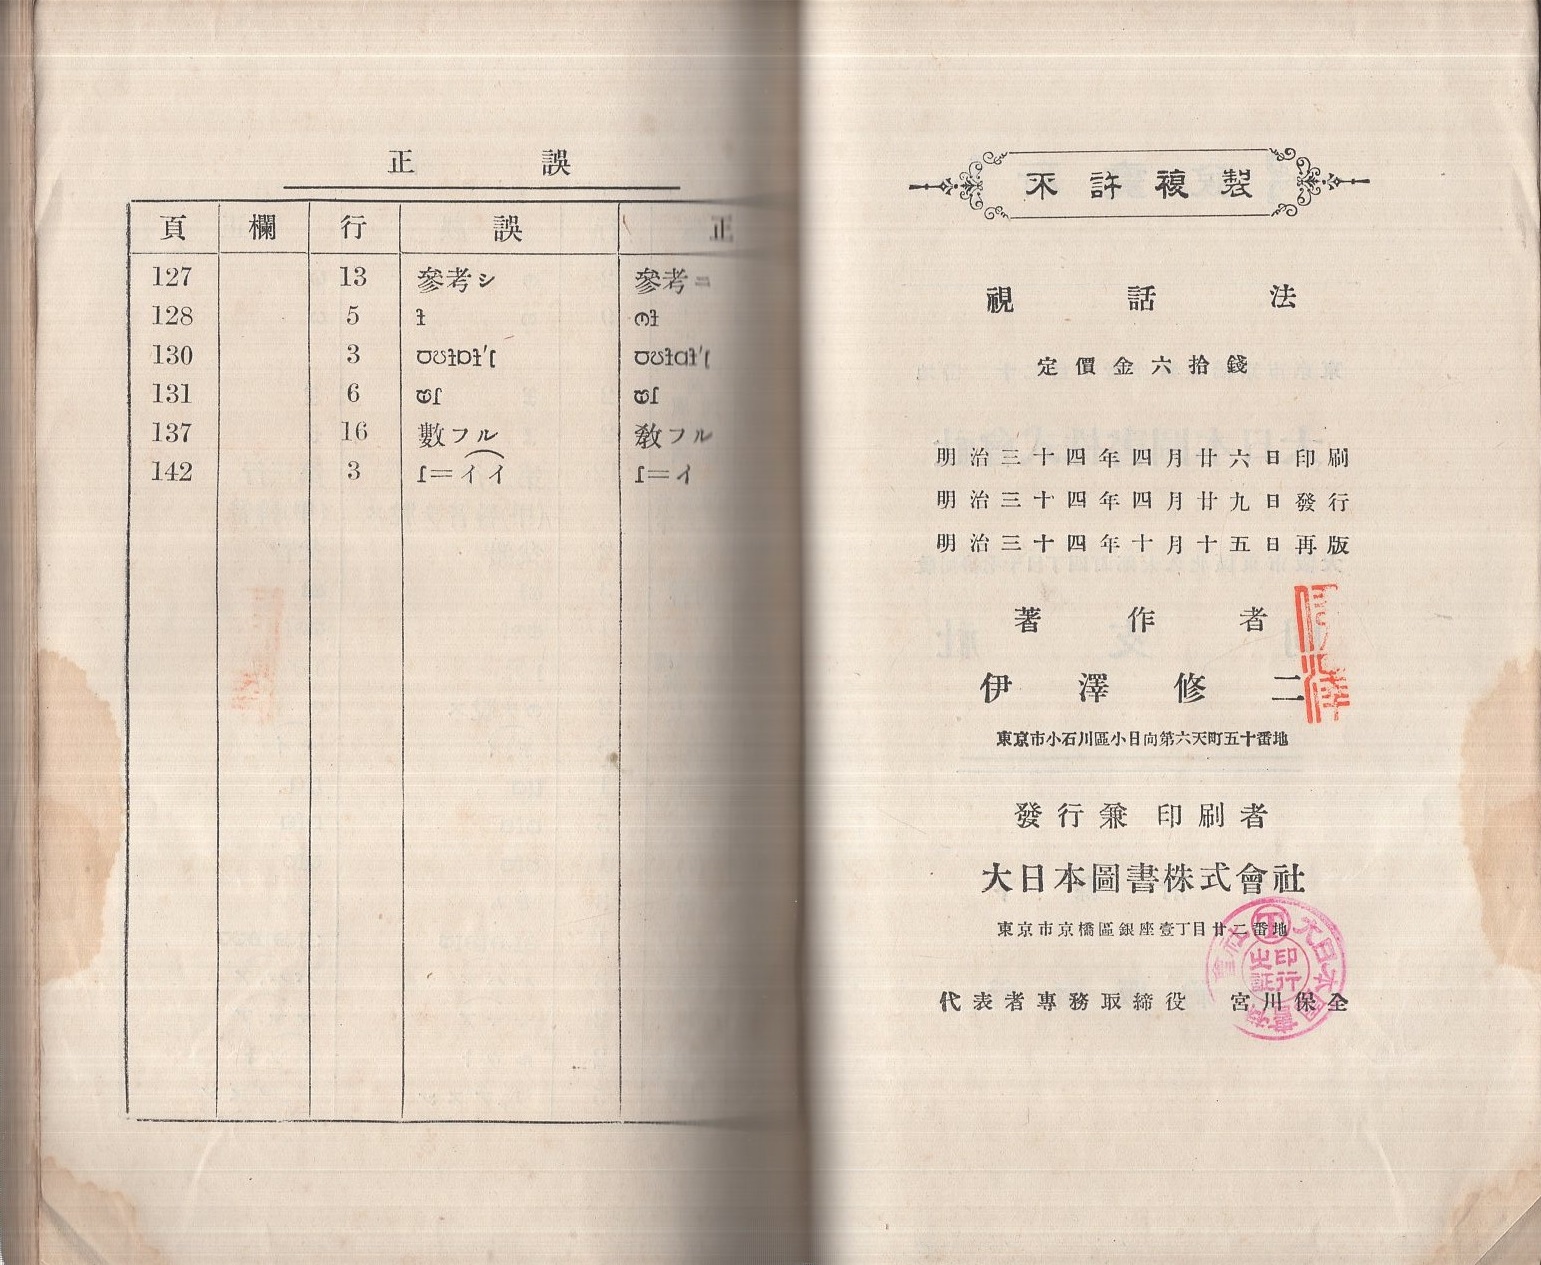 正誤
頁 欄 行 誤 正
127 13 參考シ 參考ニ
128 5
130 3
131 6
137 16 數フル 敎フル
142 3 ɾ=イイ ɾ=イ
不許複製
視話法
定價金六拾錢
明治三十四年四月廿六日印刷
明治三十四年四月廿九日發行
明治三十四年十月十五日再版
著作者
伊澤修二
東京市小石川區小日向第六天町五十番地
發行兼印刷者
大日本圖書株式會社
東京市京橋區銀座壹丁目廿二番地
代表者專務取締役 宮川保全
大日本圖書株式會社
印行之証